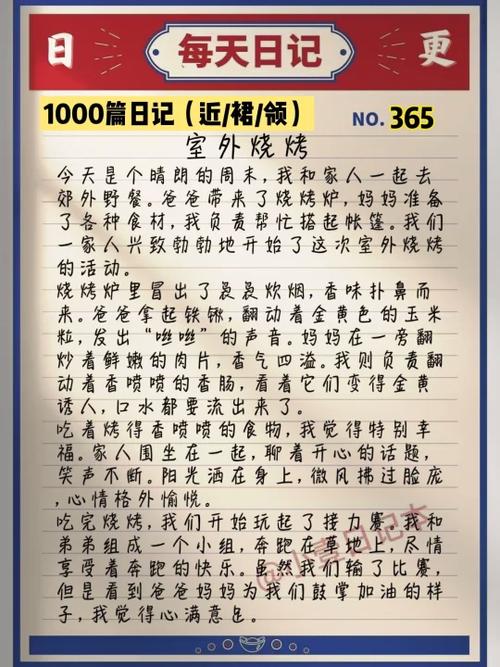 日 每天日记 更
1000篇日记（近/裙/领）
NO. 365
室外烧烤
今天是个晴朗的周末，我和家人一起去
郊外野餐。爸爸带来了烧烤炉，妈妈准备
了各种食材，我负责帮忙搭起帐篷。我们
一家人兴致勃勃地开始了这次室外烧烤
的活动。
烧烤炉里冒出了袅袅炊烟，香味扑鼻而
来。爸爸拿起铁锹，翻动着金黄色的玉米
粒，发出“咝咝”的声音。妈妈在一旁翻
炒着鲜嫩的肉片，香气四溢。我则负责翻
动着香喷喷的香肠，看着它们变得金黄
诱人，口水都要流出来了。
吃着烤得香喷喷的食物，我觉得特别幸
福。家人围坐在一起，聊着开心的话题，
笑声不断。阳光洒在身上，微风拂过脸庞
，心情格外愉悦。
吃完烧烤，我们开始玩起了接力赛。我和
弟弟组成一个小组，奔跑在草地上，尽情
享受着奔跑的快乐。虽然我们输了比赛，
但是看到爸爸妈妈为我们鼓掌加油的样
子，我觉得心满意足。
@小嘉日记本